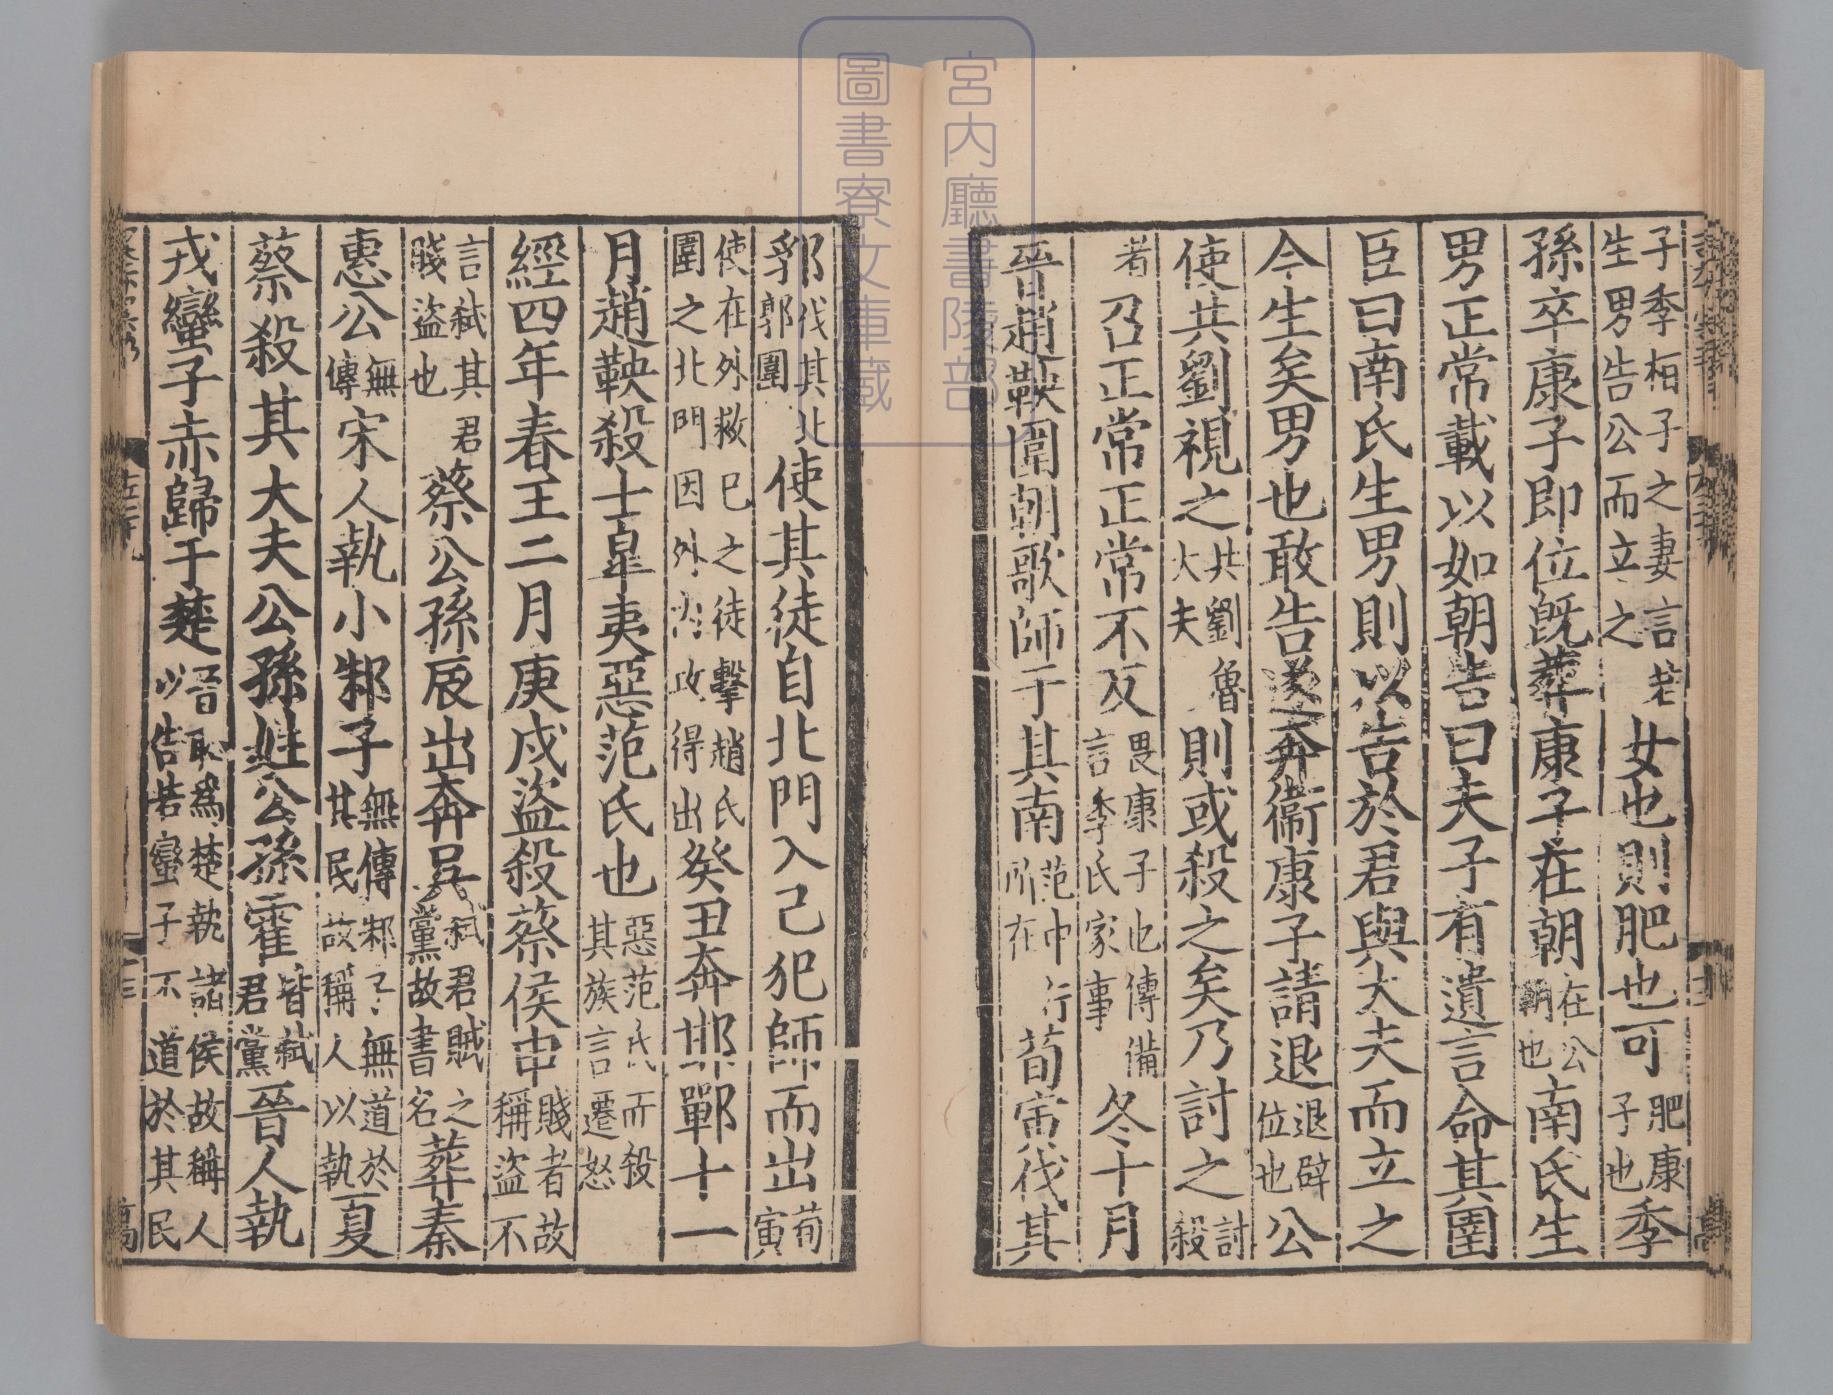 子季桓子之妻言若生男告公而立之女也則肥也可肥康子也季
孫卒康子即位既葬康子在朝在公朝也南氏生
男正常載以如朝告曰夫子有遺言命其圉
臣曰南氏生男則以告於君與大夫而立之
今生矣男也敢告遂奔衞康子請退退辟位也公
使共劉視之共劉魯大夫則或殺之矣乃討之討殺
者召正常正常不反畏康子也傳備言季氏家事冬十月
晉趙鞅圍朝歌師于其南范中行所在荀寅伐其
郛伐其北郭圍使其徒自北門入己犯師而出荀寅
使在外救己之徒擊趙氏圍之北門因外內攻得出癸丑奔邯鄲十一
月趙鞅殺士皋夷惡范氏也惡范氏而殺其族言遷怒
經四年春王二月庚戌盜殺蔡侯申賤者故稱盜不
言弑其君賤盜也蔡公孫辰出奔吳弑君賊之黨故書名葬秦
惠公無傳宋人執小邾子無傳邾子無道於其民故稱人以執夏
蔡殺其大夫公孫姓公孫霍皆弑君黨晉人執
戎蠻子赤歸于楚晉恥為楚執諸侯故稱人以告若蠻子不道於其民
宮内廳書陵部
圖書寮文庫藏